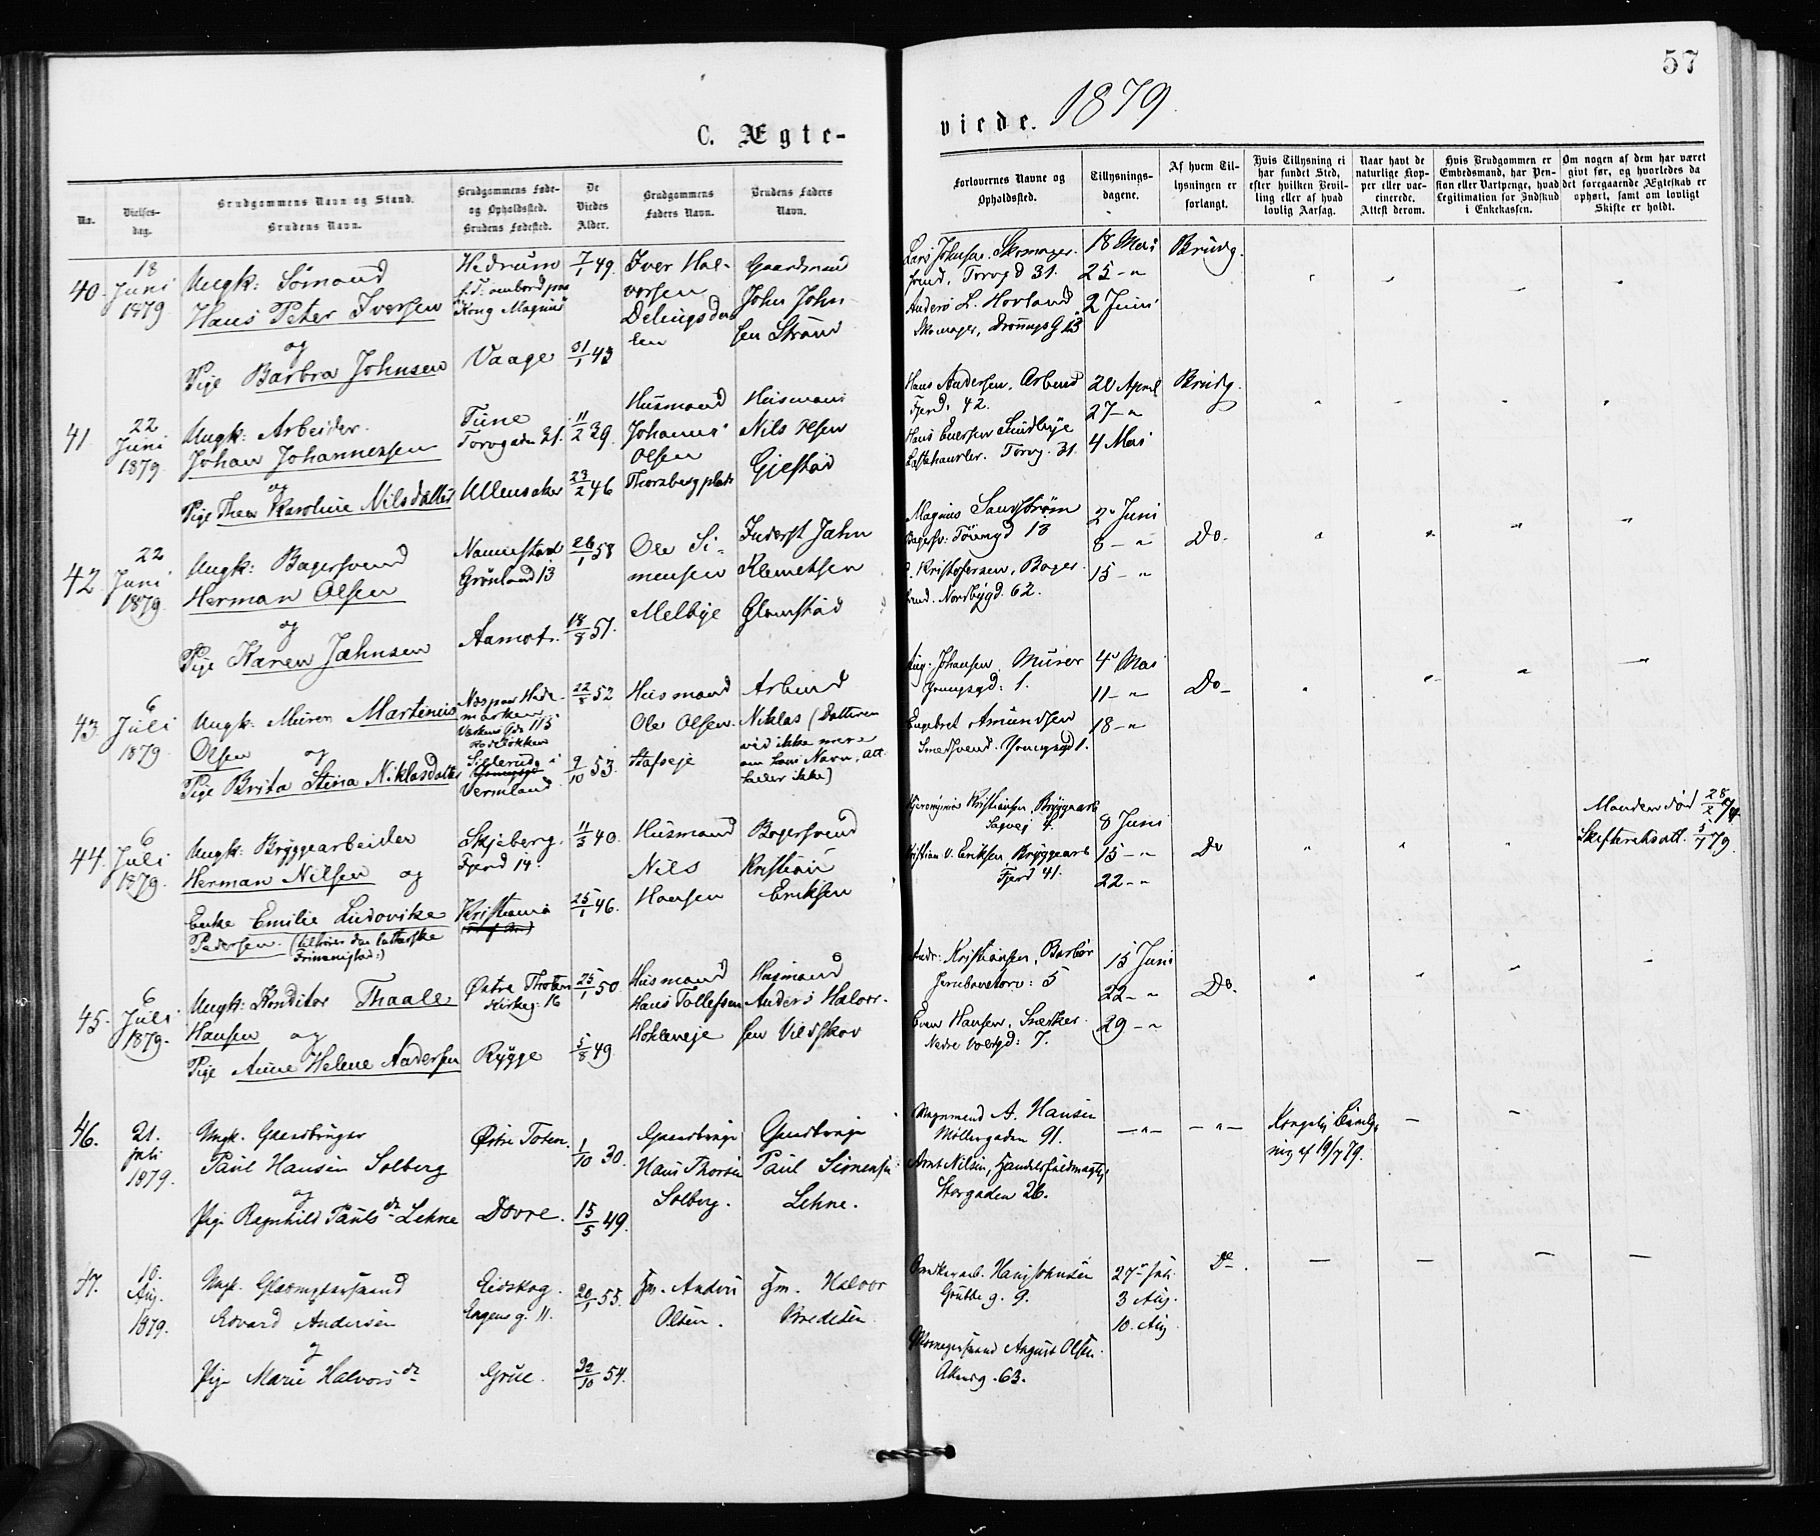 57
C. Ægte-
viede. 1879.
No.
Vielses-
dag.
Brudgommens Navn og Stand.
Brudens Navn.
Brudgommens Føde-
og Opholdsted.
Brudens Fødested.
De
Viedes
Alder.
Brudgommens
Faders Navn.
Brudens Faders
Navn.
Forlovernes Navne og
Opholdsted.
Tillysnings-
dagene.
Af hvem Til-
lysningen er
forlangt.
Hvis Tillysning ei
har fundet Sted,
efter hvilken Bevil-
ling eller af hvad
lovlig Aarsag.
Naar havt de
naturlige Kop-
per eller vac-
cinerede.
Attest derom.
Hvis Brudgommen er
Embedsmand, har Pen-
sion eller Vartpenge, hvad
Legitimation for Indskud
i Enkekassen.
Om nogen af dem har været
givt før, og hvorledes da
det foregaaende Ægteskab er
ophørt, samt om lovligt
Skifte er holdt.
40.
18
Juni
1879
Ungk: Sömand
Hans Peter Iversen
og
Pige Barbra Johnsen
Hedrum
f. T. ombord paa
"Kong Magnus"
Vaage
7/1 49.
31/1 43
Iver Hal-
vorsen
Gaardmand
John John
sen Strand
Lars Johnsen. Skomager
svend, Torvgd 31.
Anders L. Hovland
Skomager, Dronnigs G 13
18 Mai
25 - "
2 Juni
Brudg.
41
22
Juni
1879
Ungk: Arbeider.
Johan Johannessen
og
Pige Thea Karoline Nilsdatter
Tune
Torvgaden 31.
Ullensaker
11/2 39.
23/2 46
Husmand
Johannes
Olsen
Thorsbergplads
Husmand
Nils Olsen
Gjestad
Hans Andersen, Arbeid
Fjerd. 42.
Hans Evensen Lundbye
Torvg. 31.
20 April
27 - "
4 Mai
Brudg.
42
22
Juni
1879
Ungk: Bagersvend
Herman Olsen
og
Pige Karen Jahnsen
Nannestad
Grönland 13
Aamot.
26/1 58
18/8 51.
Ole Si-
mensen
Melbye
Inderst Jahn
Klemetsen
Glomstad
Magnus Sandström
Bagersv: 13
Kristofersen, Bager
svend. Nordbygd. 62.
2 Juni
8 - "
15 - "
Do.
43
6
Juli
1879.
Ungk. Murer Martinius
Olsen og
Pige Brita Stina Niklasdatter
Næs paa Hede-
marken
Sillerud i
Vermland
22/8 52
9/10 53.
Husmand
Ole Olsen
Stafseje
Arbeid
Niklas (Datteren
ved ikke mere
om hans Navn, Att.
heller ikke)
Aug. Johansen Murer
Youngsgd: 1.
Engebret Amundsen
Smedsvend. Youngsgd 1.
4 Mai
11 - "
18 - "
Do -
44.
6
Juli
1879.
Ungk: Bryggearbeider
Herman Nilsen og
Enke Emilie Ludovika
Pedersen. (tilhører den lutherske
Frimenighed:)
Skjeberg.
Fjerd 14.
Kristiania
11/3 40.
25/1 46.
Husmand
Nils
Hansen
Bagersvend
Kristian
Eriksen
Hjeronymus Kristiansen, Bryggearb
Sagvej 4.
Kristian V. Eriksen, Bryggearb
Fjerd 41.
8 Juni
15 - "
22 - "
Do
Manden död 28/2 74
Skifteretsatt. 5/7 79.
45.
6
Juli
1879.
Ungk: Konditor Thaale
Hansen og
Pige Anne Helene Andersen
Østre Thoten
Kirkeg: 16
Rygge
25/1 50.
5/8 49
Husmand
Hans Tollefsen
Hokleneje
Husmand
Anders Halvor-
sen Vildskov
Andr: Kristiansen, Barber
Jernbanetorv: 5
Even Hansen, Snedker
Nedre Voldgd: 7.
15 Juni
22 - "
29 - "
Do.
46.
21.
Juli
1879.
Ungk. Gaardbruger
Paul Hansen Solberg
og
Pige Ragnhild Paulsdr Lehne
Østre Toten.
Dovre.
1/10 30.
15/5 49.
Gaardbruger
Hans Thorsen
Solberg.
Gaardbruger
Paul Simensen
Lehne.
Vognmand A. Hansen
Møllergaden 91.
Arnt Nilsen, Handelsfuldmægtig
Storgaden 26.
- " -
- " -
Kongelig Bevil-
ning af 19/7 79.
47.
10.
Aug.
1879.
Ungk. Glasmestersvend
Edvard Andersen
og
Pige Marie Halvorsdr
Eidskog.
Engens g. 11.
Grue.
20/1 55.
22/10 54.
Hm. Anders
Olsen.
Hm. Halvor
Bredesen
Hans Johnsen
Grubbe g. 9.
August Olsen.
Akersg. 63.
27 Juli
3 Aug.
10. Aug
Do.